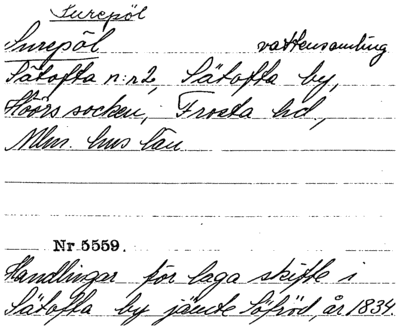 Surepöl
Surepöl vattensamling
Sätofta n:r 2, Sätofta by,
Höörs socken, Frosta hd,
Mlm. hus län
Nr. 5559.
Handlingar för laga skifte i
Sätofta by jämte Löfröd, år 1834.